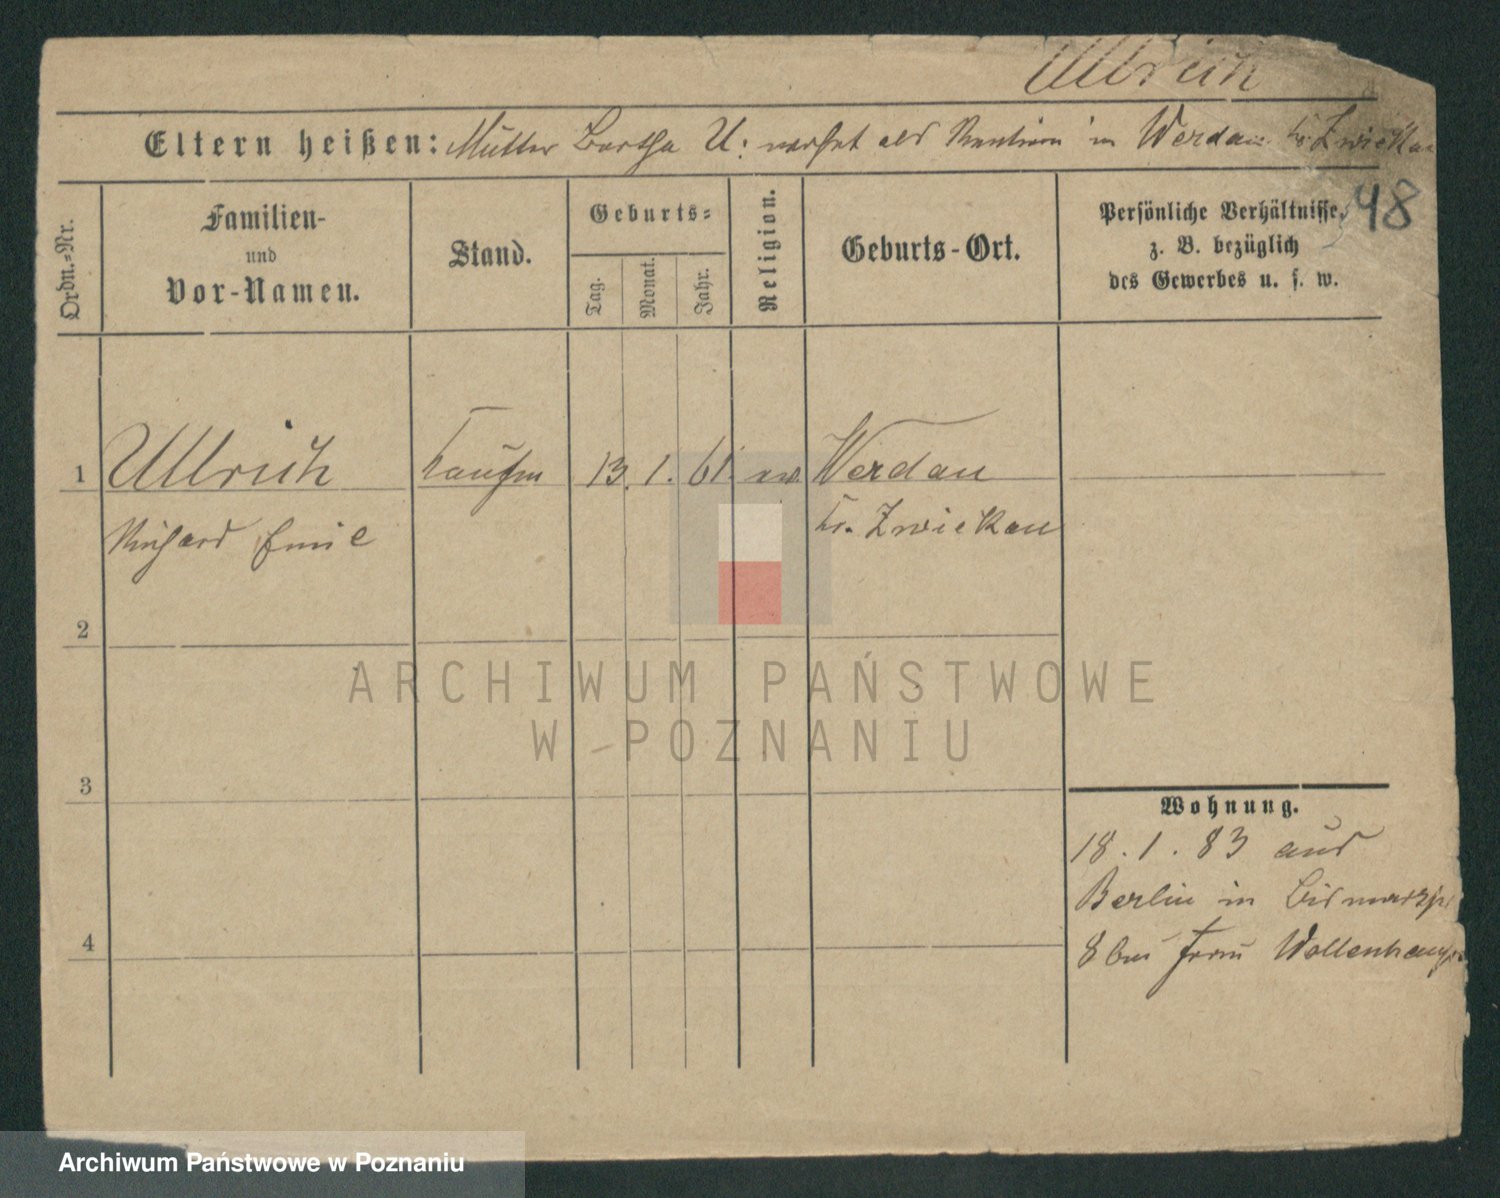 Ullrich
Eltern heißen: Mutter Bertha U: wohnt als Rentiere in Werdau Kr. Zwickau
48
Ordn.-Nr.
Familien-
und
Vor-Namen.
Stand.
Geburts-
Tag.
Monat.
Jahr.
Religion.
Geburts-Ort.
Persönliche Verhältnisse,
z. B. bezüglich
des Gewerbes u. s. w.
1 Ullrich Kaufm 13. 1. 61. ev. Werdau
Richard Emil Kr. Zwickau
2
3
4
Wohnung.
18. 1. 83 aus
Berlin in Bismarckstr
8 bei Frau Wollenhaupt
ARCHIWUM PAŃSTWOWE
W POZNANIU
Archiwum Państwowe w Poznaniu